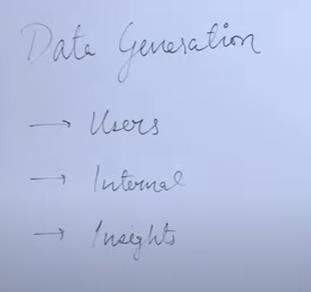 Data Generation
→ Users
→ Internal
→ Insights